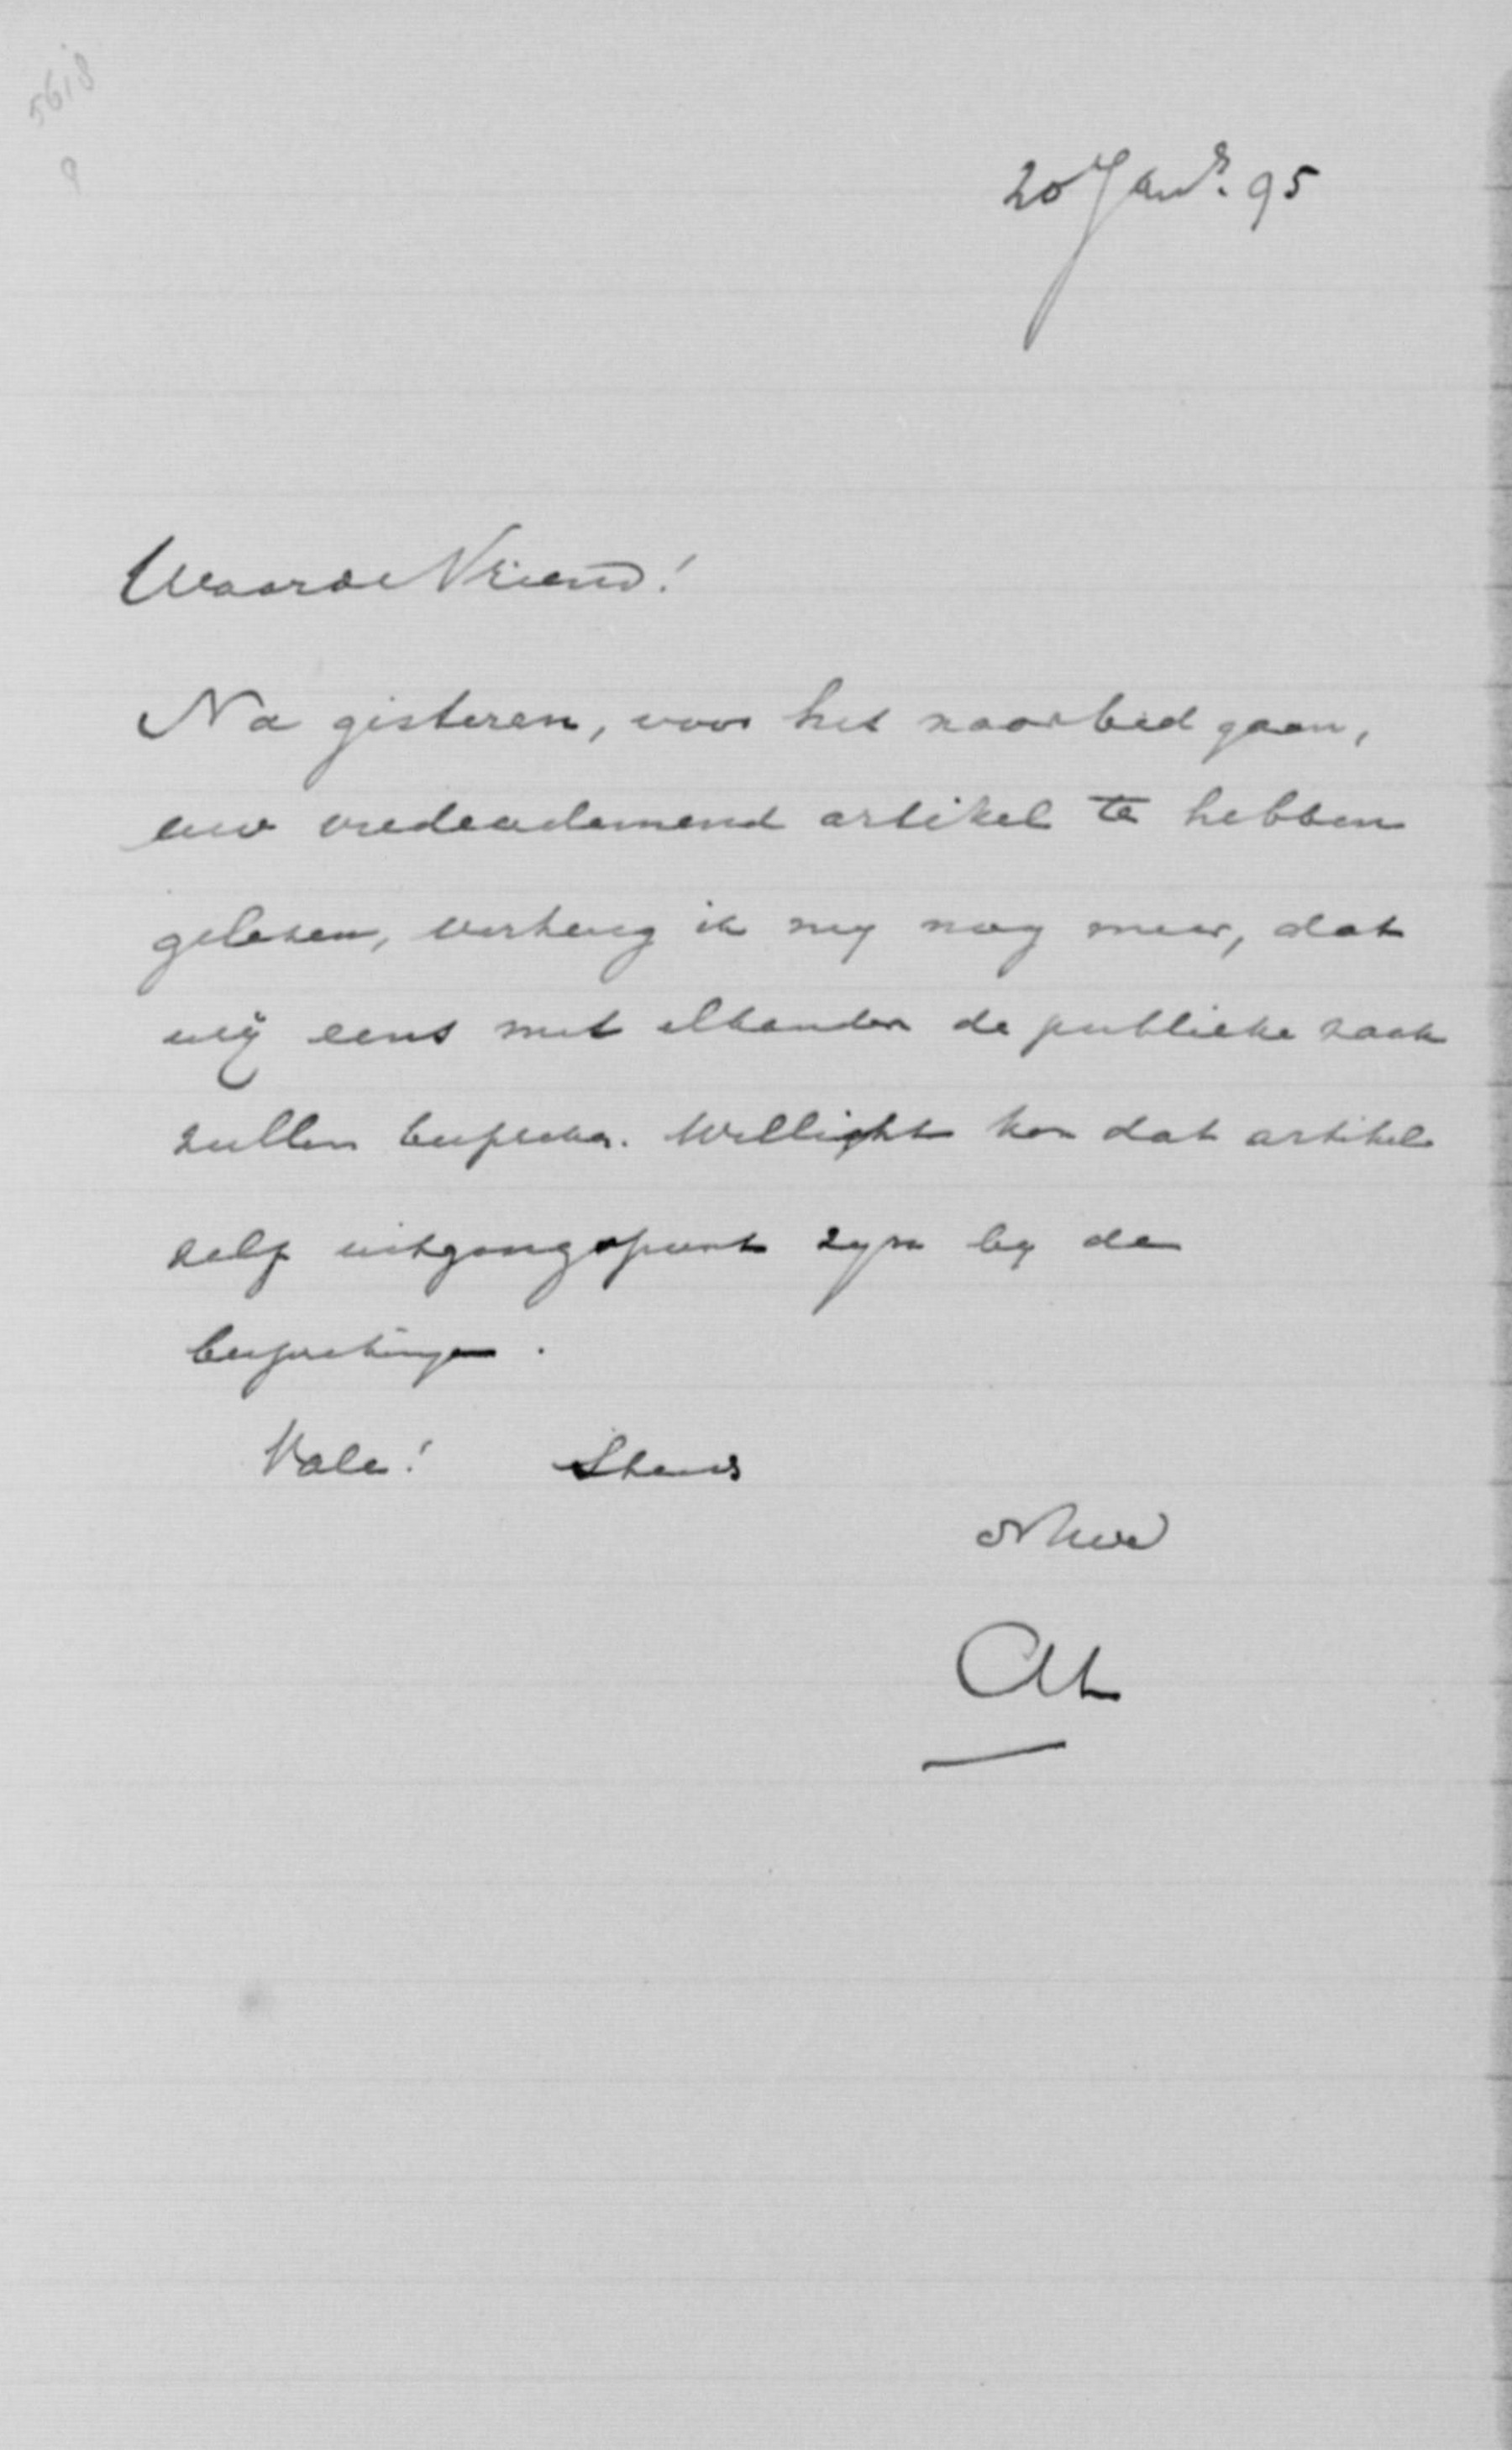 5618
20 Jan<sup>r</sup>. 95
Waarde Vriend!
Na gisteren, voor het naar bed gaan,
uw vredeademend artikel te hebben
gelezen, verheug ik my nog meer, dat
wij eens met elkander de publieke zaak
zullen bespreken. Wellicht kan dat artikel
zelf uitgangspunt zyn by de
besprekingen.
Vale! Steeds